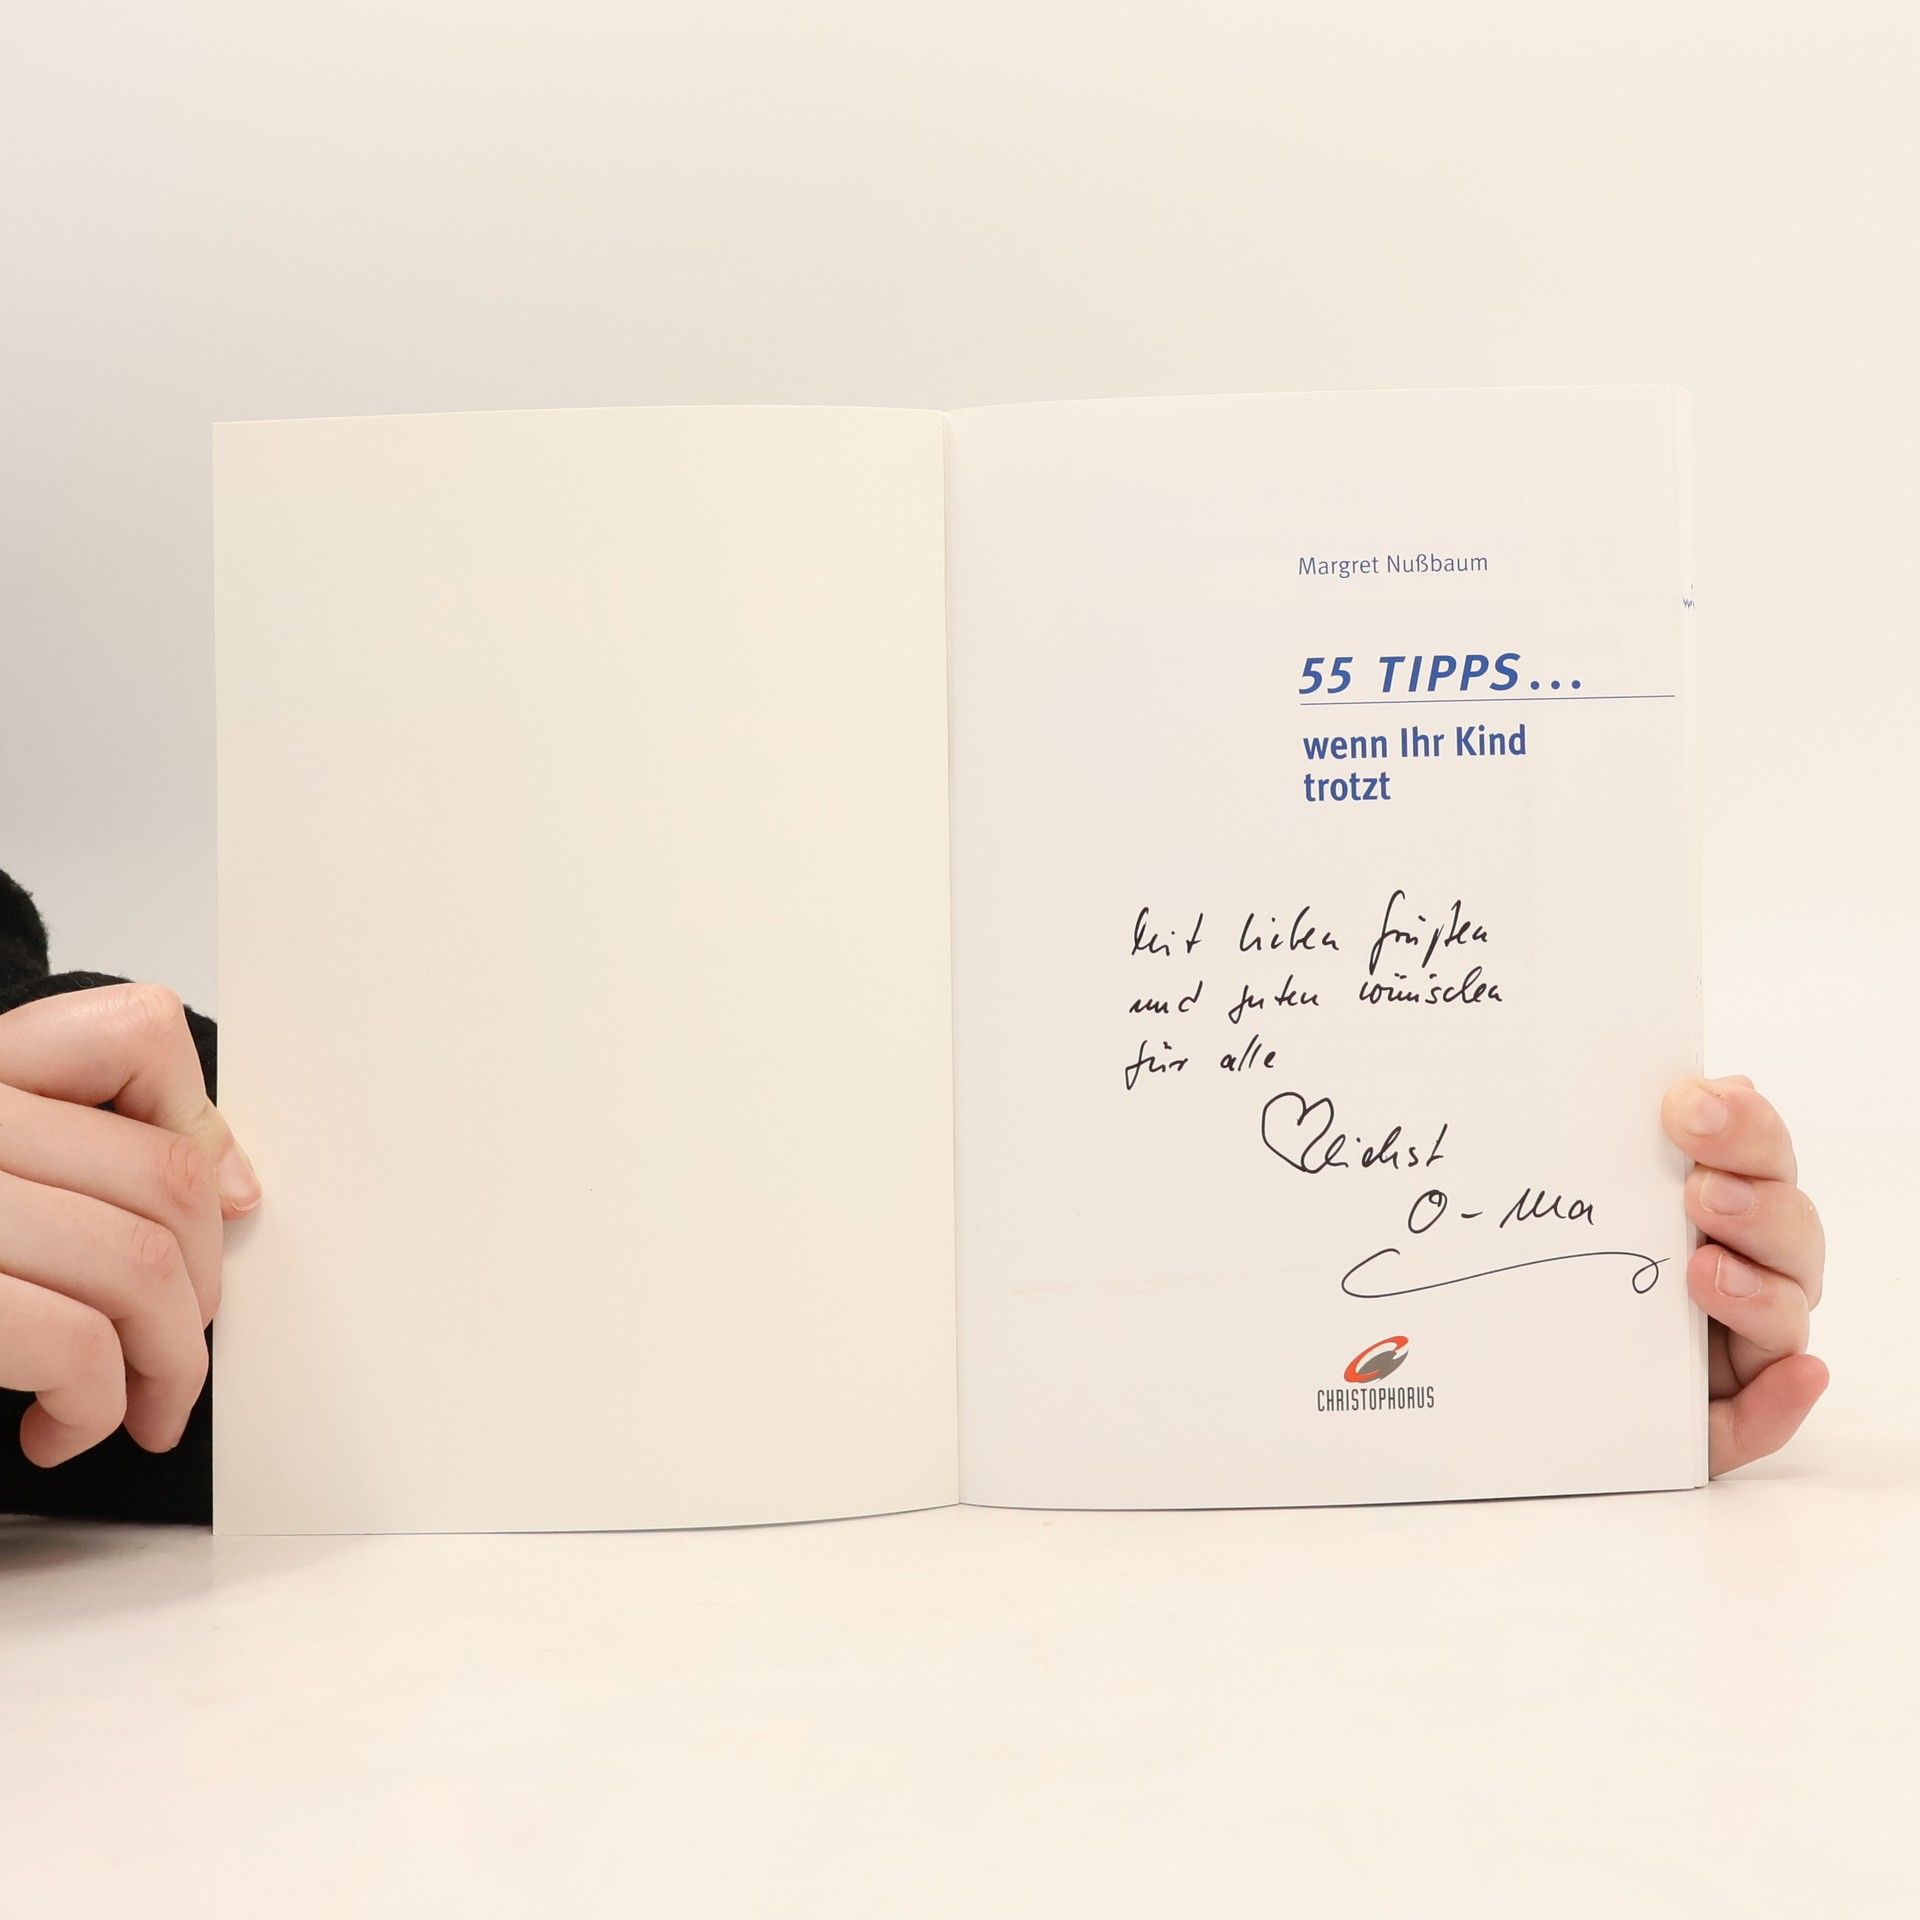 Margret Nußbaum
55 TIPPS...
wenn Ihr Kind
trotzt
Mit lieben Grüßen
und guten Wünschen
für alle
♡lichst
O-Ma
CHRISTOPHORUS